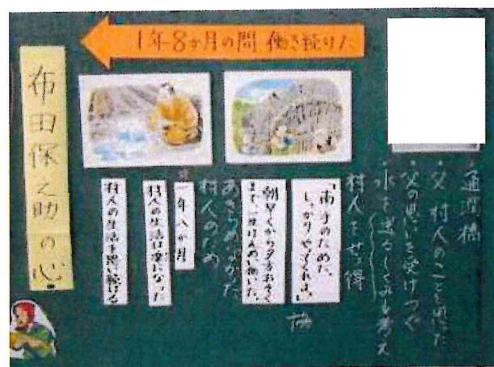 1年8か月の間 働き続けた
通潤橋
・父 村人のことを思った
父の思いを受けつぐ
水を送るしくみを考え
村人をせっ得
「両手のためだ、
しっかりやってくれよ。」
橋
朝早くから夕方おそく
まで、一生けん命働いた。
あきらめなかった
村人のため
一年八か月
村人の生活は楽になった
村人の生活を思い続ける
布田保之助の心